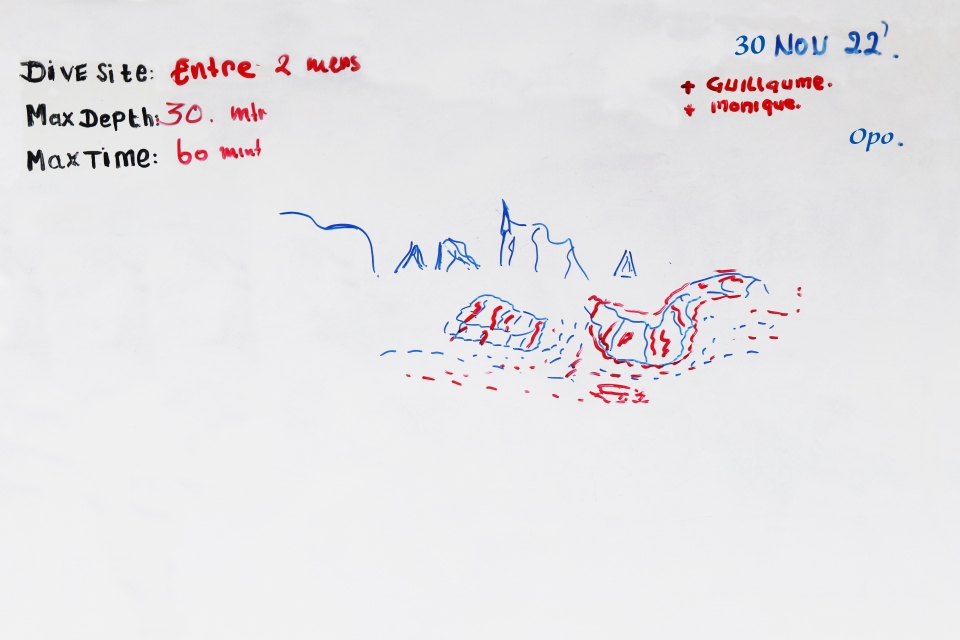 30 NOV 22'.
Dive Site: Entre 2 mers
+ Guillaume.
Max Depth: 30. mtr
+ monique.
Opo.
Max Time: 60 mint